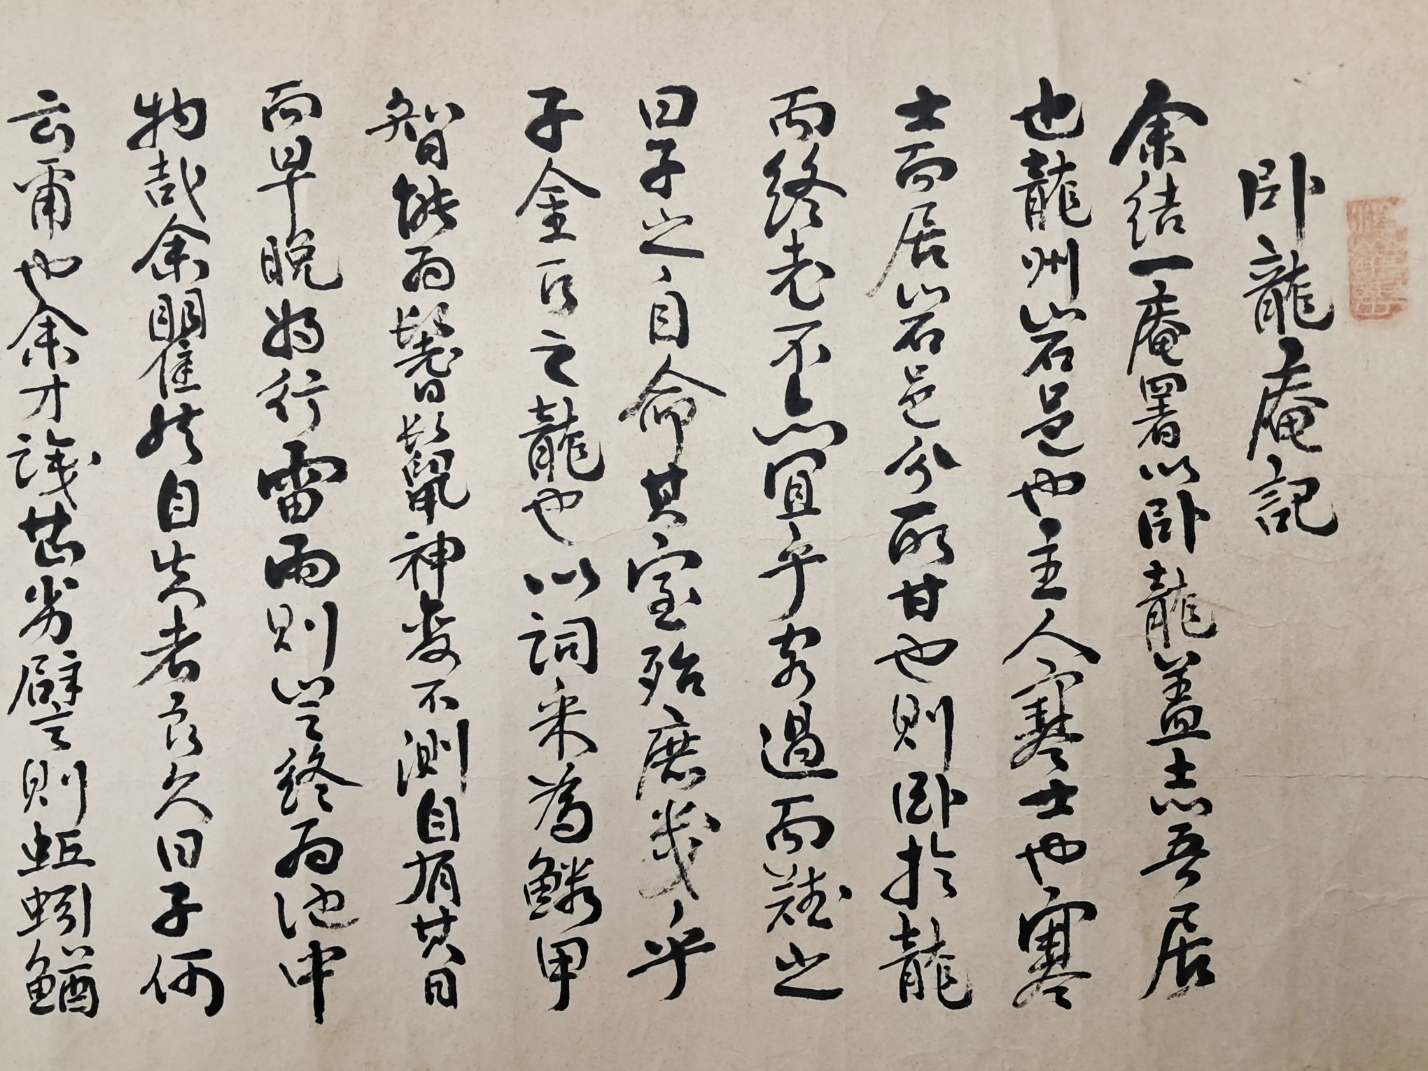 卧龍庵記
余結一庵署以卧龍蓋志吾居
也龍州岩邑也主人寒士也寒
士而居岩邑分所甘也則卧於龍
而終老不亦宜乎客過而難之
曰子之自命其室殆庶幾乎
子余之龍也以詞采為鱗甲
智能為鬐鬣神變不測自有其日
而早晚將行雷雨則豈終為池中
物哉余瞿然自失者良久曰子何
云爾也余才譾劣譬言則蚯蚓鰌